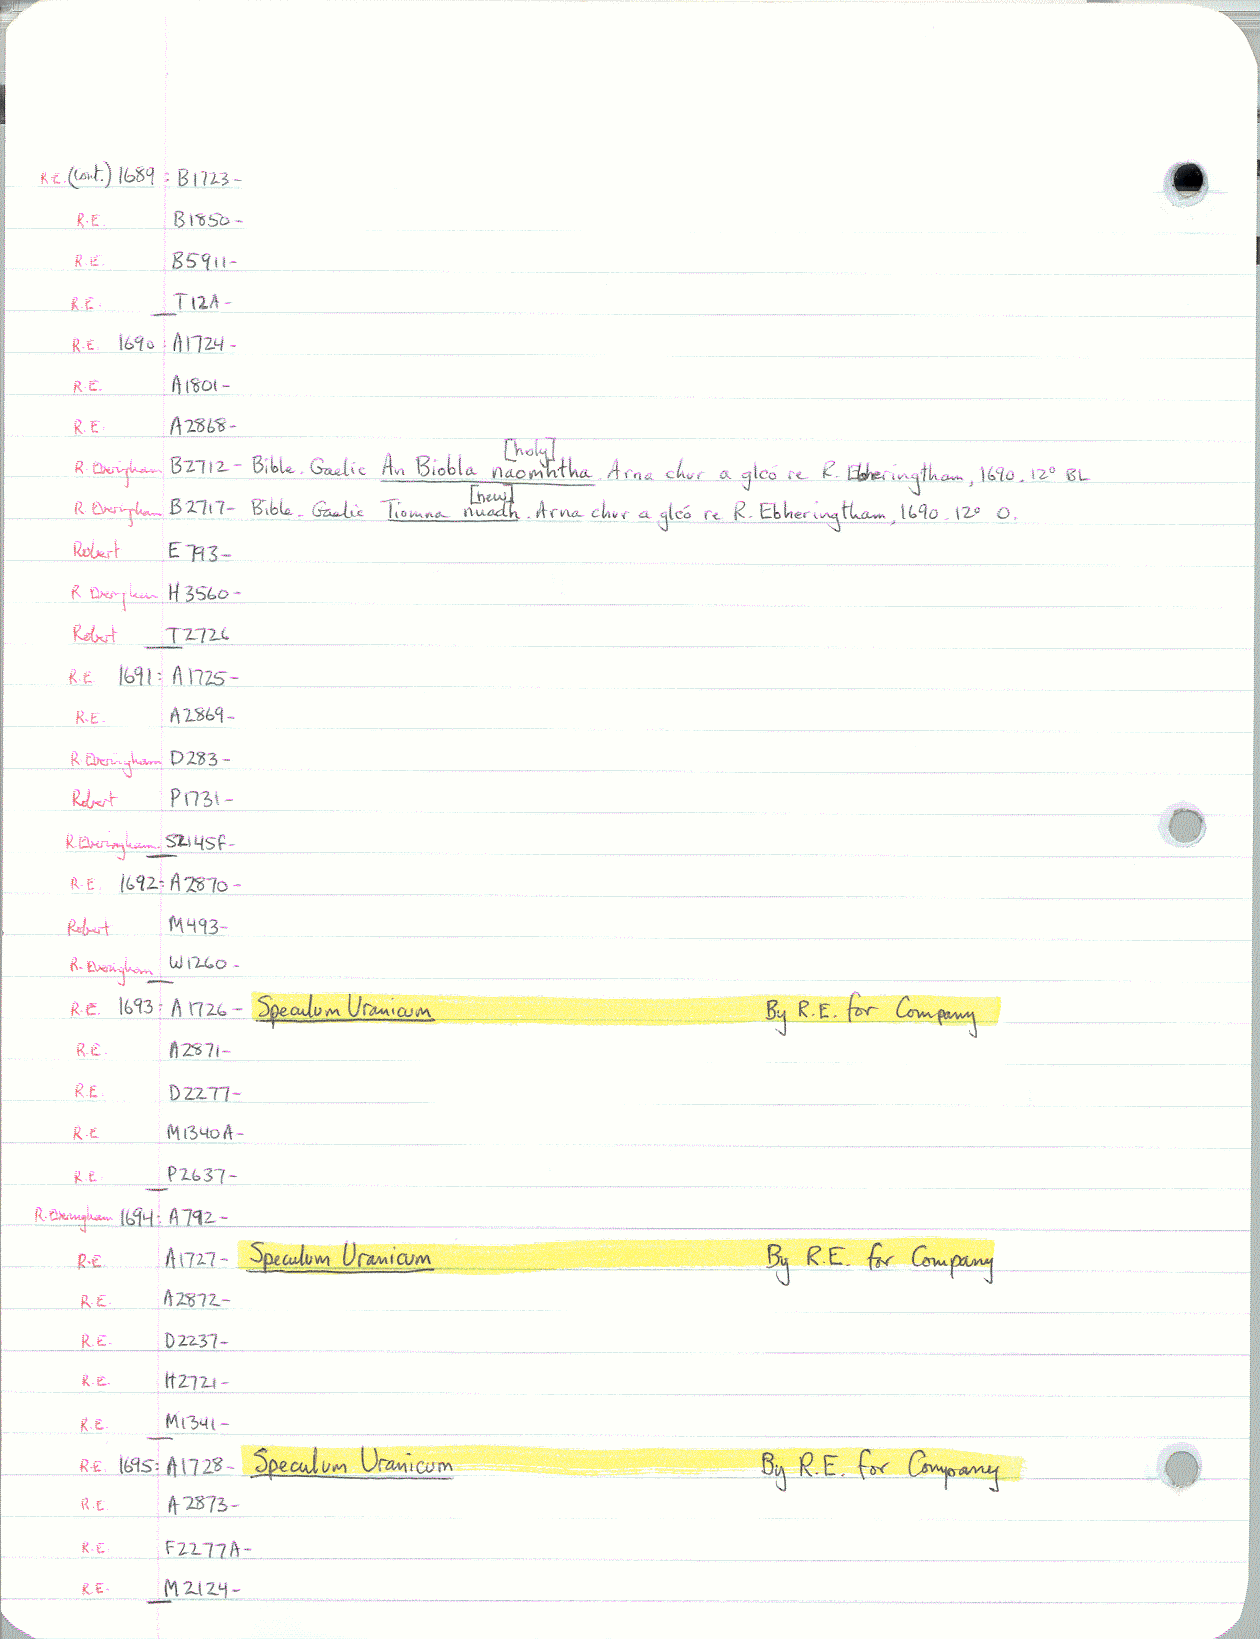 R.E. (cont.) 1689: B1723-
R.E. B1850-
R.E. B5911-
R.E. T12A-
R.E. 1690: A1724-
R.E. A1801-
R.E. A2868-
[holy]
R. Everingham B2712- Bible. Gaelic An Biobla naomhtha. Arna chur a gleó re R. Ebheringtham, 1690. 12° BL
[new]
R. Everingham B2717- Bible. Gaelic Tiomna nuadh. Arna chur a gleó re R. Ebheringtham, 1690. 12° O.
Robert E793-
R Everingham H3560-
Robert T2726
R.E. 1691: A1725-
R.E. A2869-
R. Everingham D283-
Robert P1731-
R. Everingham S2145F-
R.E. 1692: A2870-
Robert M493-
R. Everingham W1260-
R.E. 1693: A1726- Speculum Uranicum By R.E. for Company
R.E. A2871-
R.E. D2277-
R.E. M1340A-
R.E. P2637-
R. Everingham 1694: A792-
R.E. A1727- Speculum Uranicum By R.E. for Company
R.E. A2872-
R.E. D2237-
R.E. H2721-
R.E. M1341-
R.E. 1695: A1728- Speculum Uranicum By R.E. for Company
R.E. A2873-
R.E. F2277A-
R.E. M2124-